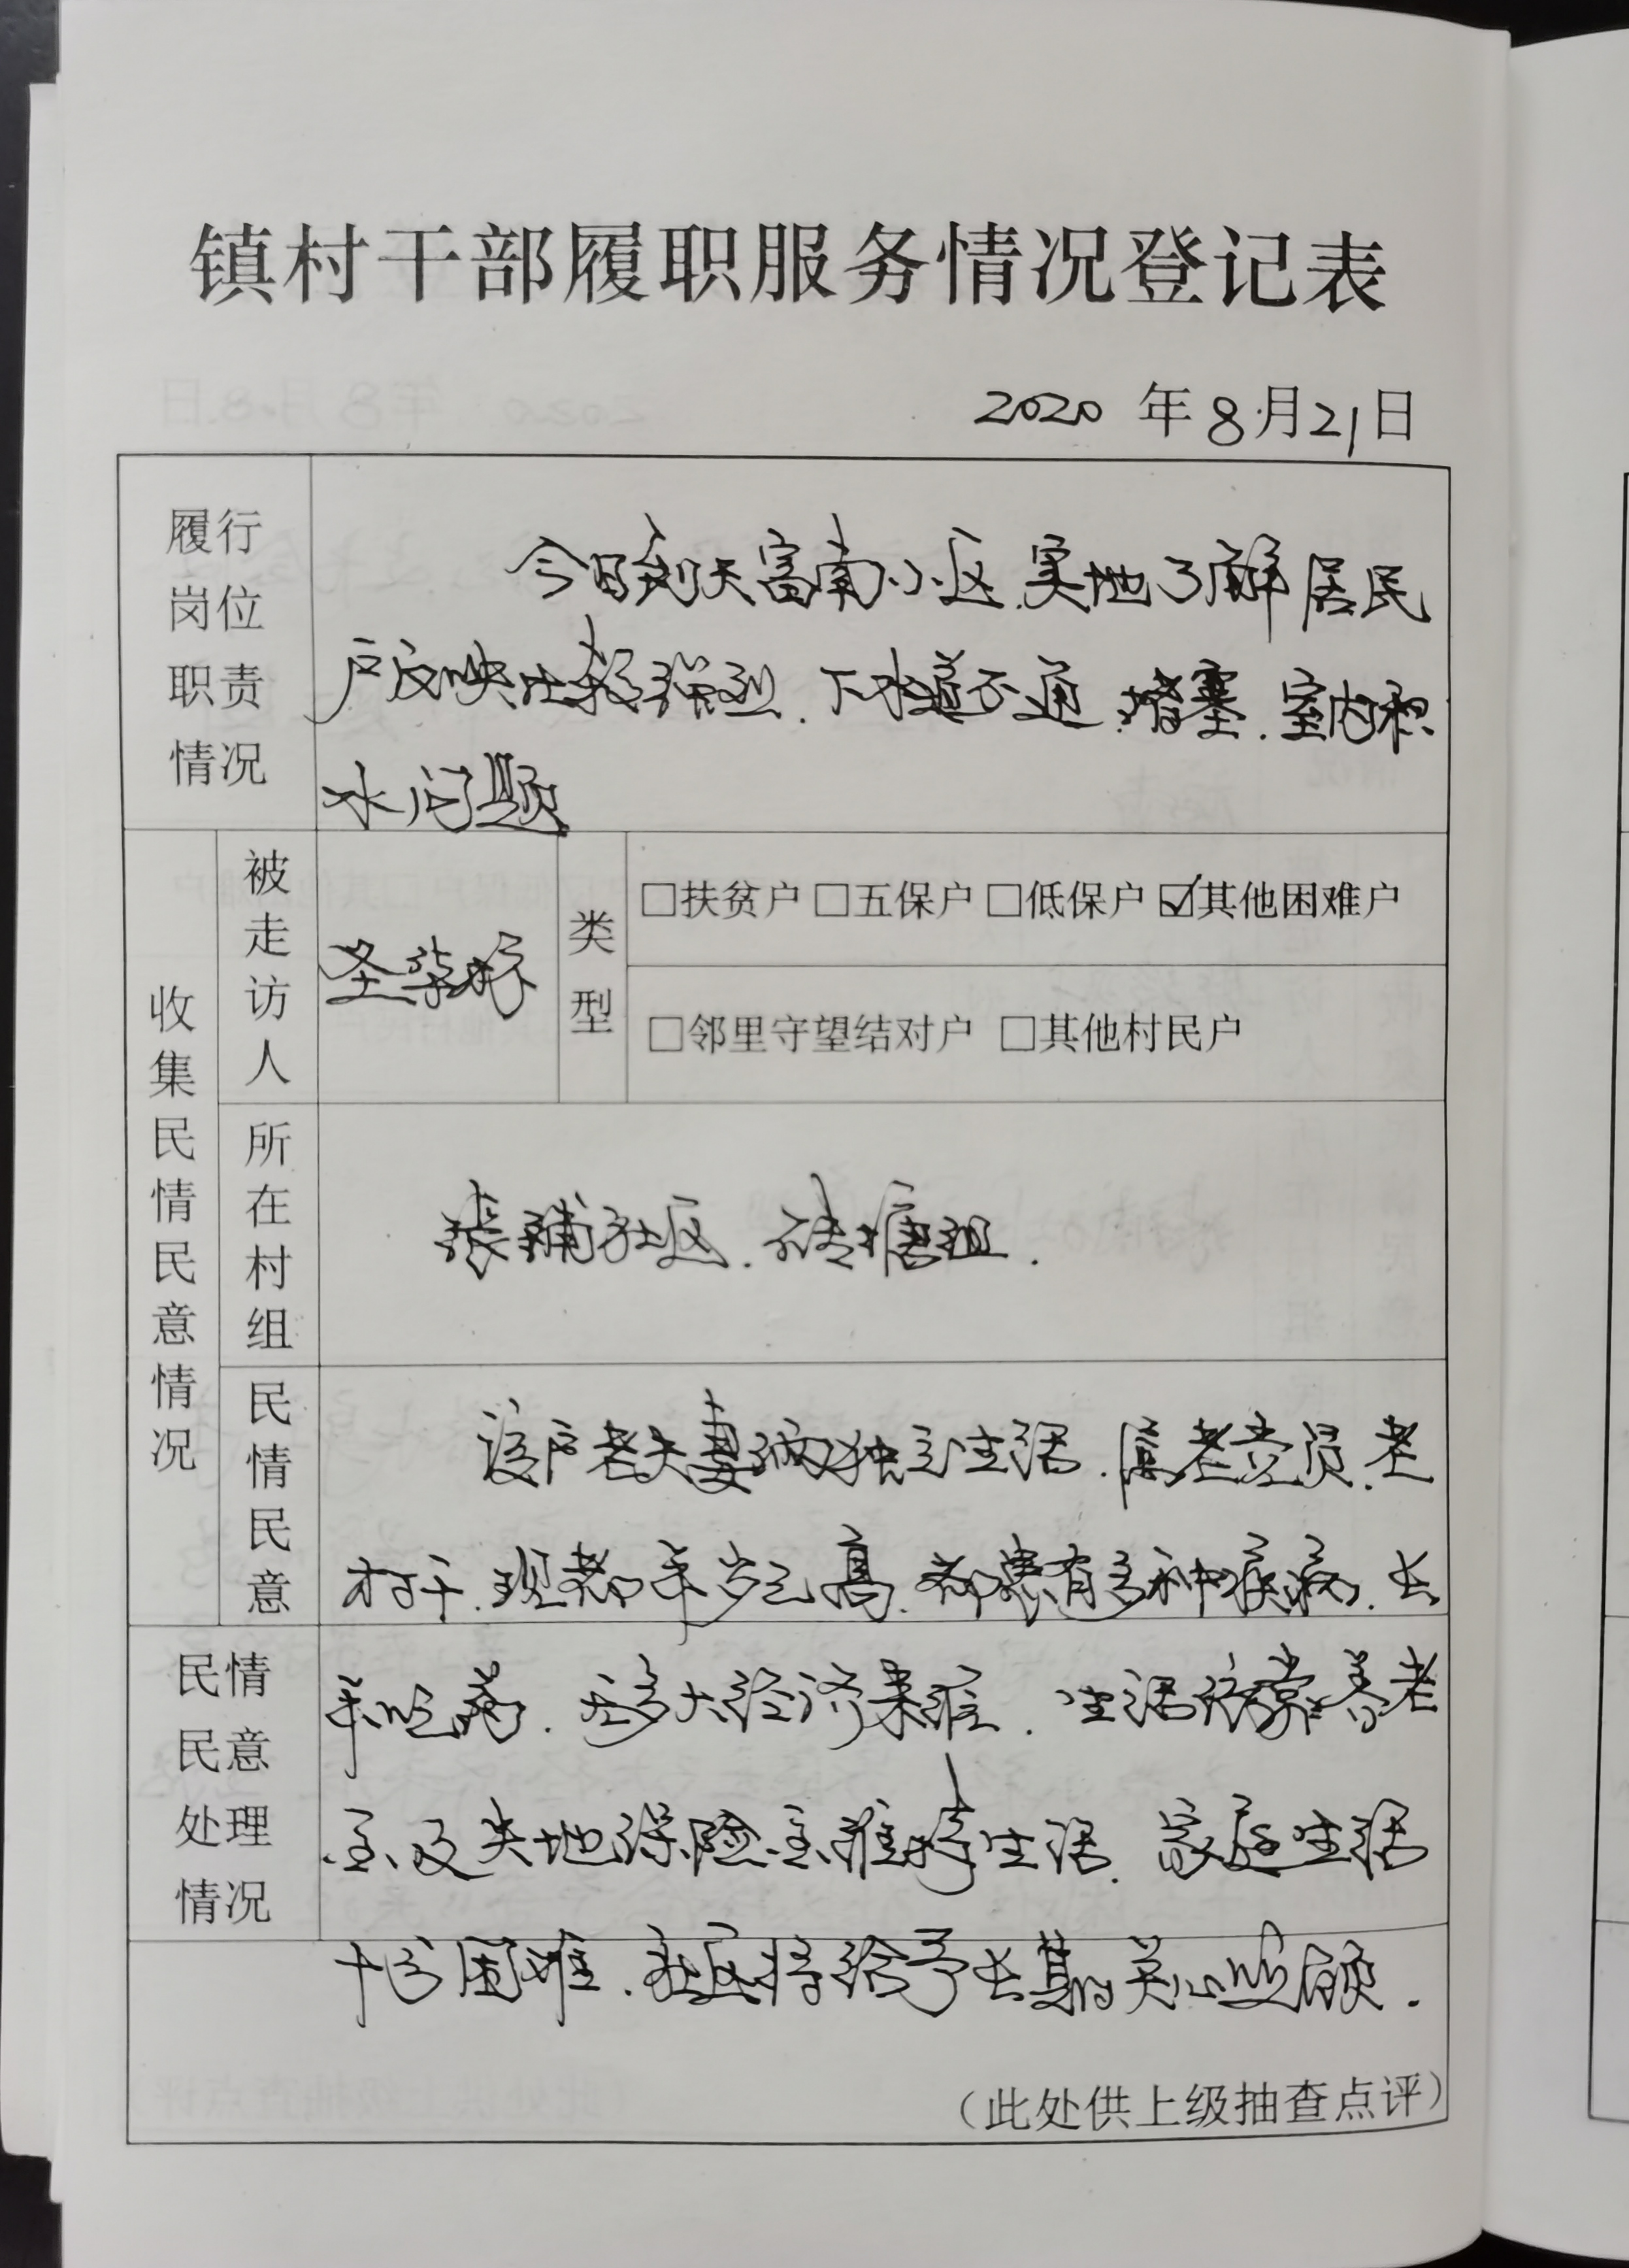 镇村干部履职服务情况登记表
2020 年 8 月 21 日
履行岗位职责情况
今日到天富南小区.实地了解居民
户反映比较强烈.下水道不通.堵塞.室内积
水问题
收集民情民意情况
被走访人
类型
□扶贫户 □五保户 □低保户 ☑其他困难户
□邻里守望结对户 □其他村民户
所在村组
张铺社区.砖塘组.
民情民意
该户老夫妻俩独立生活.属老党员.老
村干.现都年岁已高.都患有多种疾病.长
民情民意处理情况
年吃药.无多大经济来源.生活依靠养老
金及失地保险金维持生活.家庭生活
十分困难.社区将给予长期的关心照顾.
（此处供上级抽查点评）